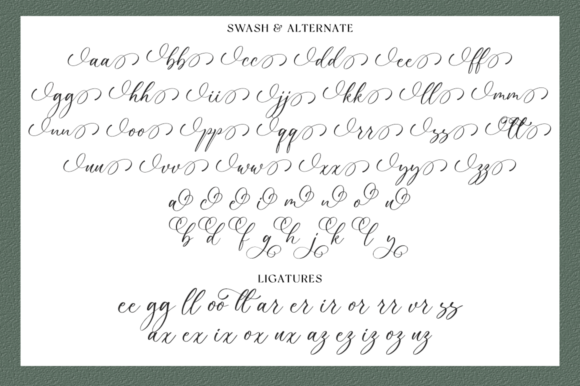 SWASH & ALTERNATE
aa bb cc dd ee ff
gg hh ii jj kk ll mm
nn oo pp qq rr ss tt
uu vv ww xx yy zz
a c e i m n o u
b d f g h j k l y
LIGATURES
ee gg ll oo tt ar er ir or rr vr ss
ax ex ix ox ux az ez iz oz uz